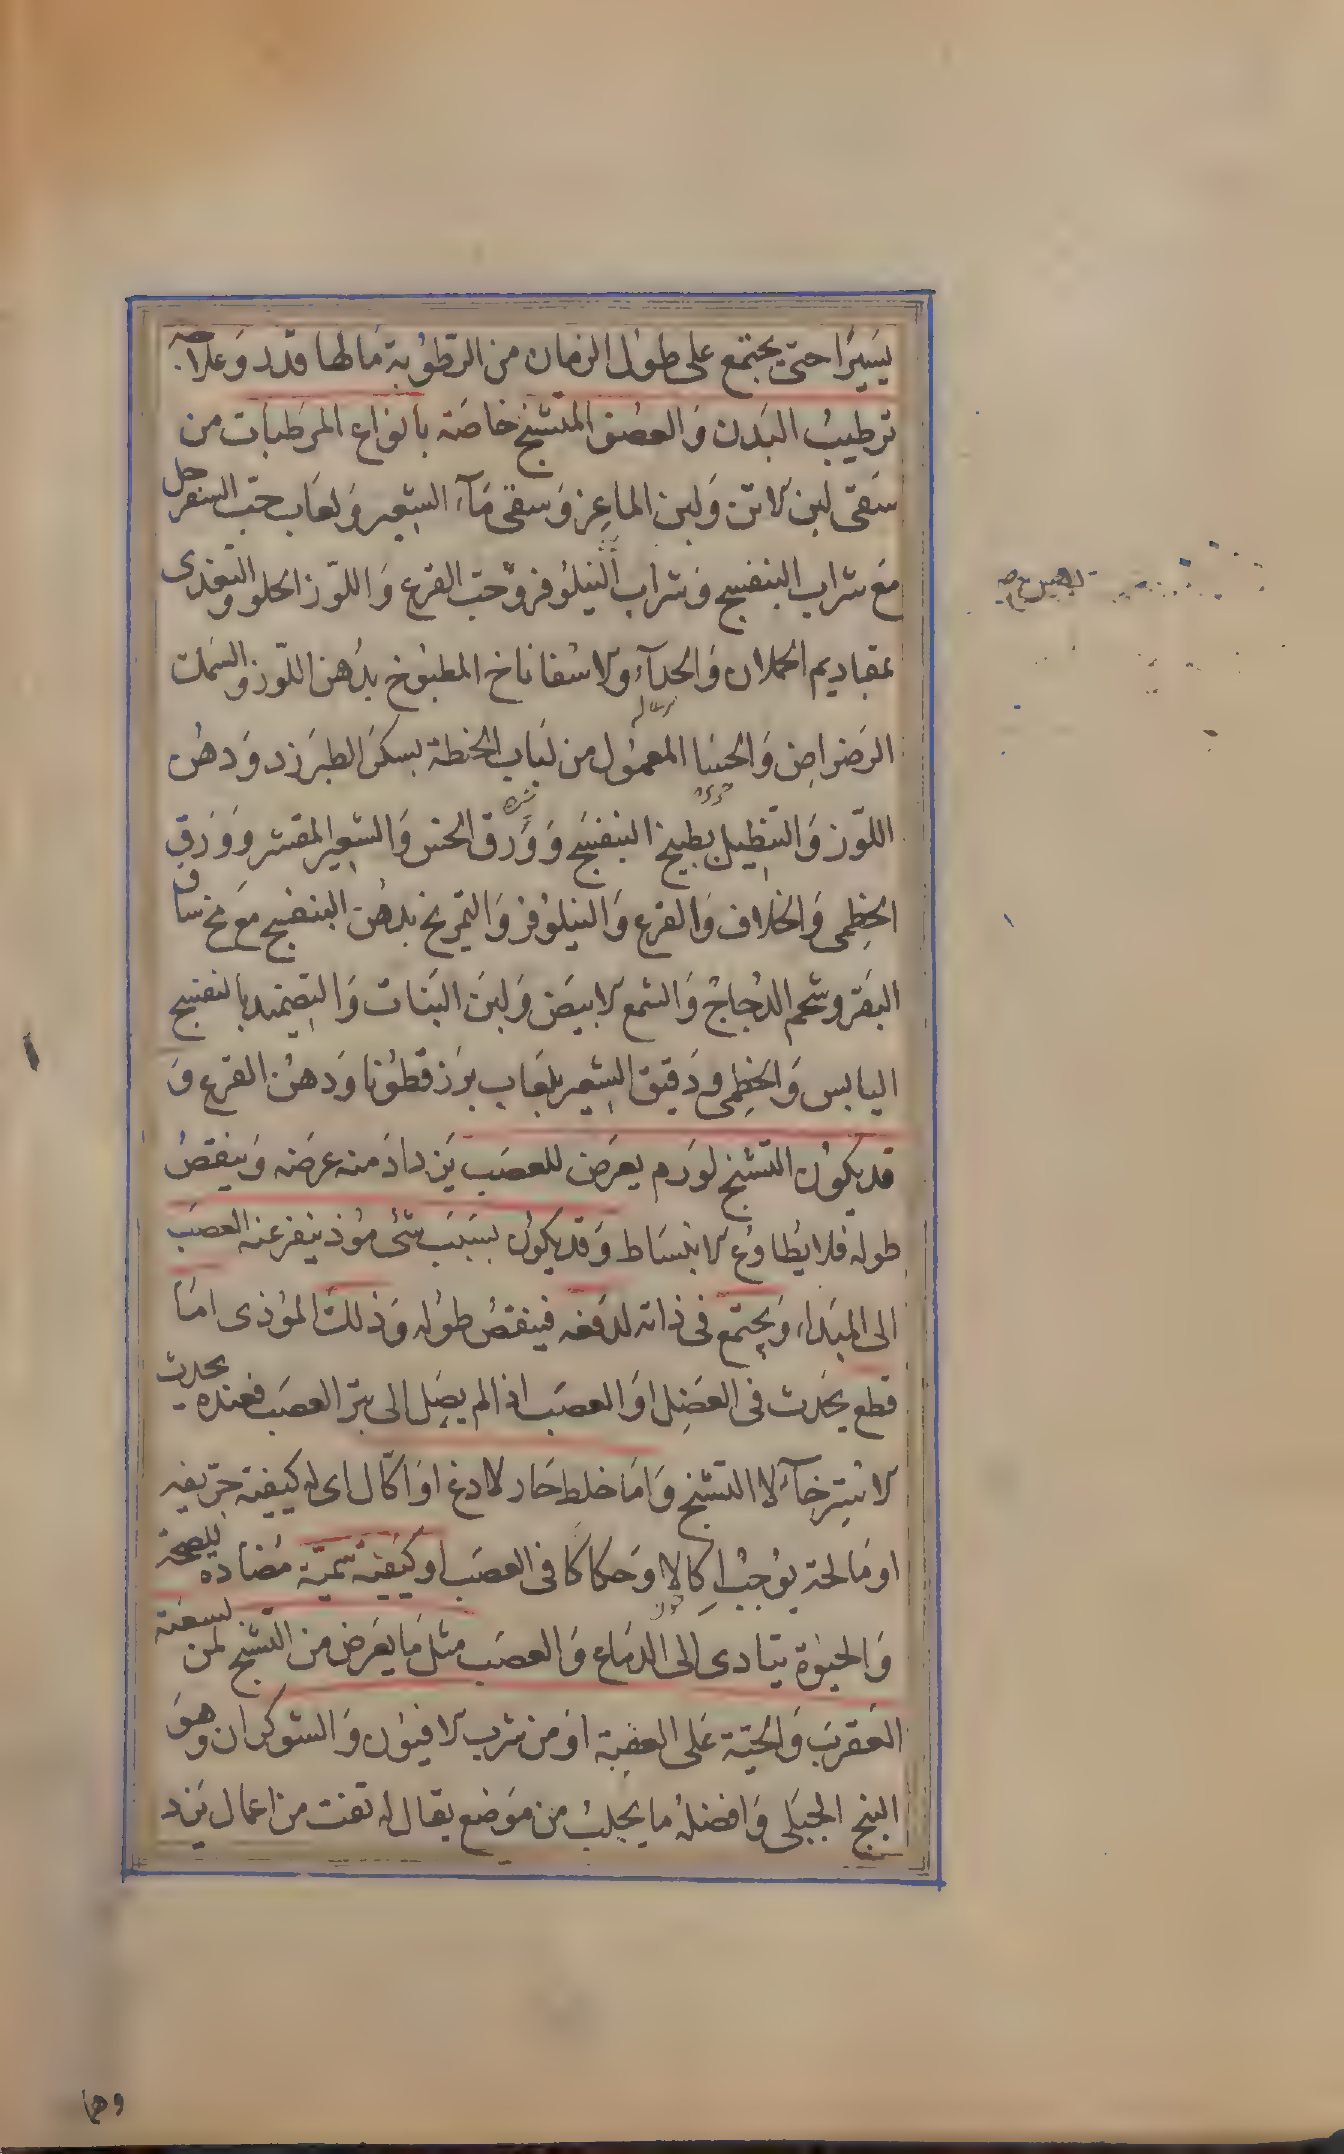 يَسيرًا حتى يجتمع على طول الزمان من الرطوبة مَا لها قدر وَعلاجه
ترطيبُ البَدن وَالعضو المتشنج خاصّة بأنواع المرطبات من
سَقى لبن الاتن وَلبن الماعز وَسقى مَآء الشعير وَلعَاب حبّ السفرجل
مَع شراب البنفسج وَشراب النيلوفر وحَبّ القرع وَاللوز الحلو والتغذى
بمقاديم الحملان وَالجدآء والاسفاناخ المطبوخ بدُهن اللوز والسّمك
الرَضراضِى وَالحسَا المعمُول من لبَاب الحنطة بسكر الطبَرزد وَدهن
اللوز وَالتنطيل بطبيخ البنفسَج وَوَرق الخس وَالشعير المقشر وَوَرق
الخطمى وَالخلاف وَالقرع وَالنيلوفر وَالتمريخ بدهن البنفسج مَع مخ ساق
البقر وشحم الدجاج وَالشمع الابيَض وَلبَن البَنات وَالتضميد بالبنفسج
اليابس وَالخطمى ودَقيق الشعير بلعَاب بزَر قطونا وَدهن القرع وَ
قد يكون التشنج لوَرم يعرَض للعصَب يَزدادَ منه عرضَه وَينقصُ
طوله فلا يُطاوع الانبسَاط وَقد يكون بسَبَب شئ مُؤذ ينفر عنه العصَب
الى المبدَاء وَيجتمع فى ذاته لدفعه فينقصُ طوله وَذلك المؤذى امّا
قطع يحدث فى العضَل اوَ العصَب اذا لم يصل الى بتر العصَب فعنده يحدث
الاسترخآء لا التشنج وَامّا خلط حَار لاذع اوَ اكّال اى له كيفية حرّيفيه
او مَالحة يوُجبُ اكالا وَحكاكا فى العصَب او كيفية سميّة مُضاده للصحة
وَالحيوة يتادى الى الدماغ وَالعصَب مثل مَا يعَرض من التشنج لمن لسعَته
العَقربَ وَالحيّة عَلى العصبة اوَ من شرب الافيون وَالشوكران وهوَ
البنج الجبلى وَافضله ما يجلب من موَضع يقال له تفت من اعمال يَزد
وها